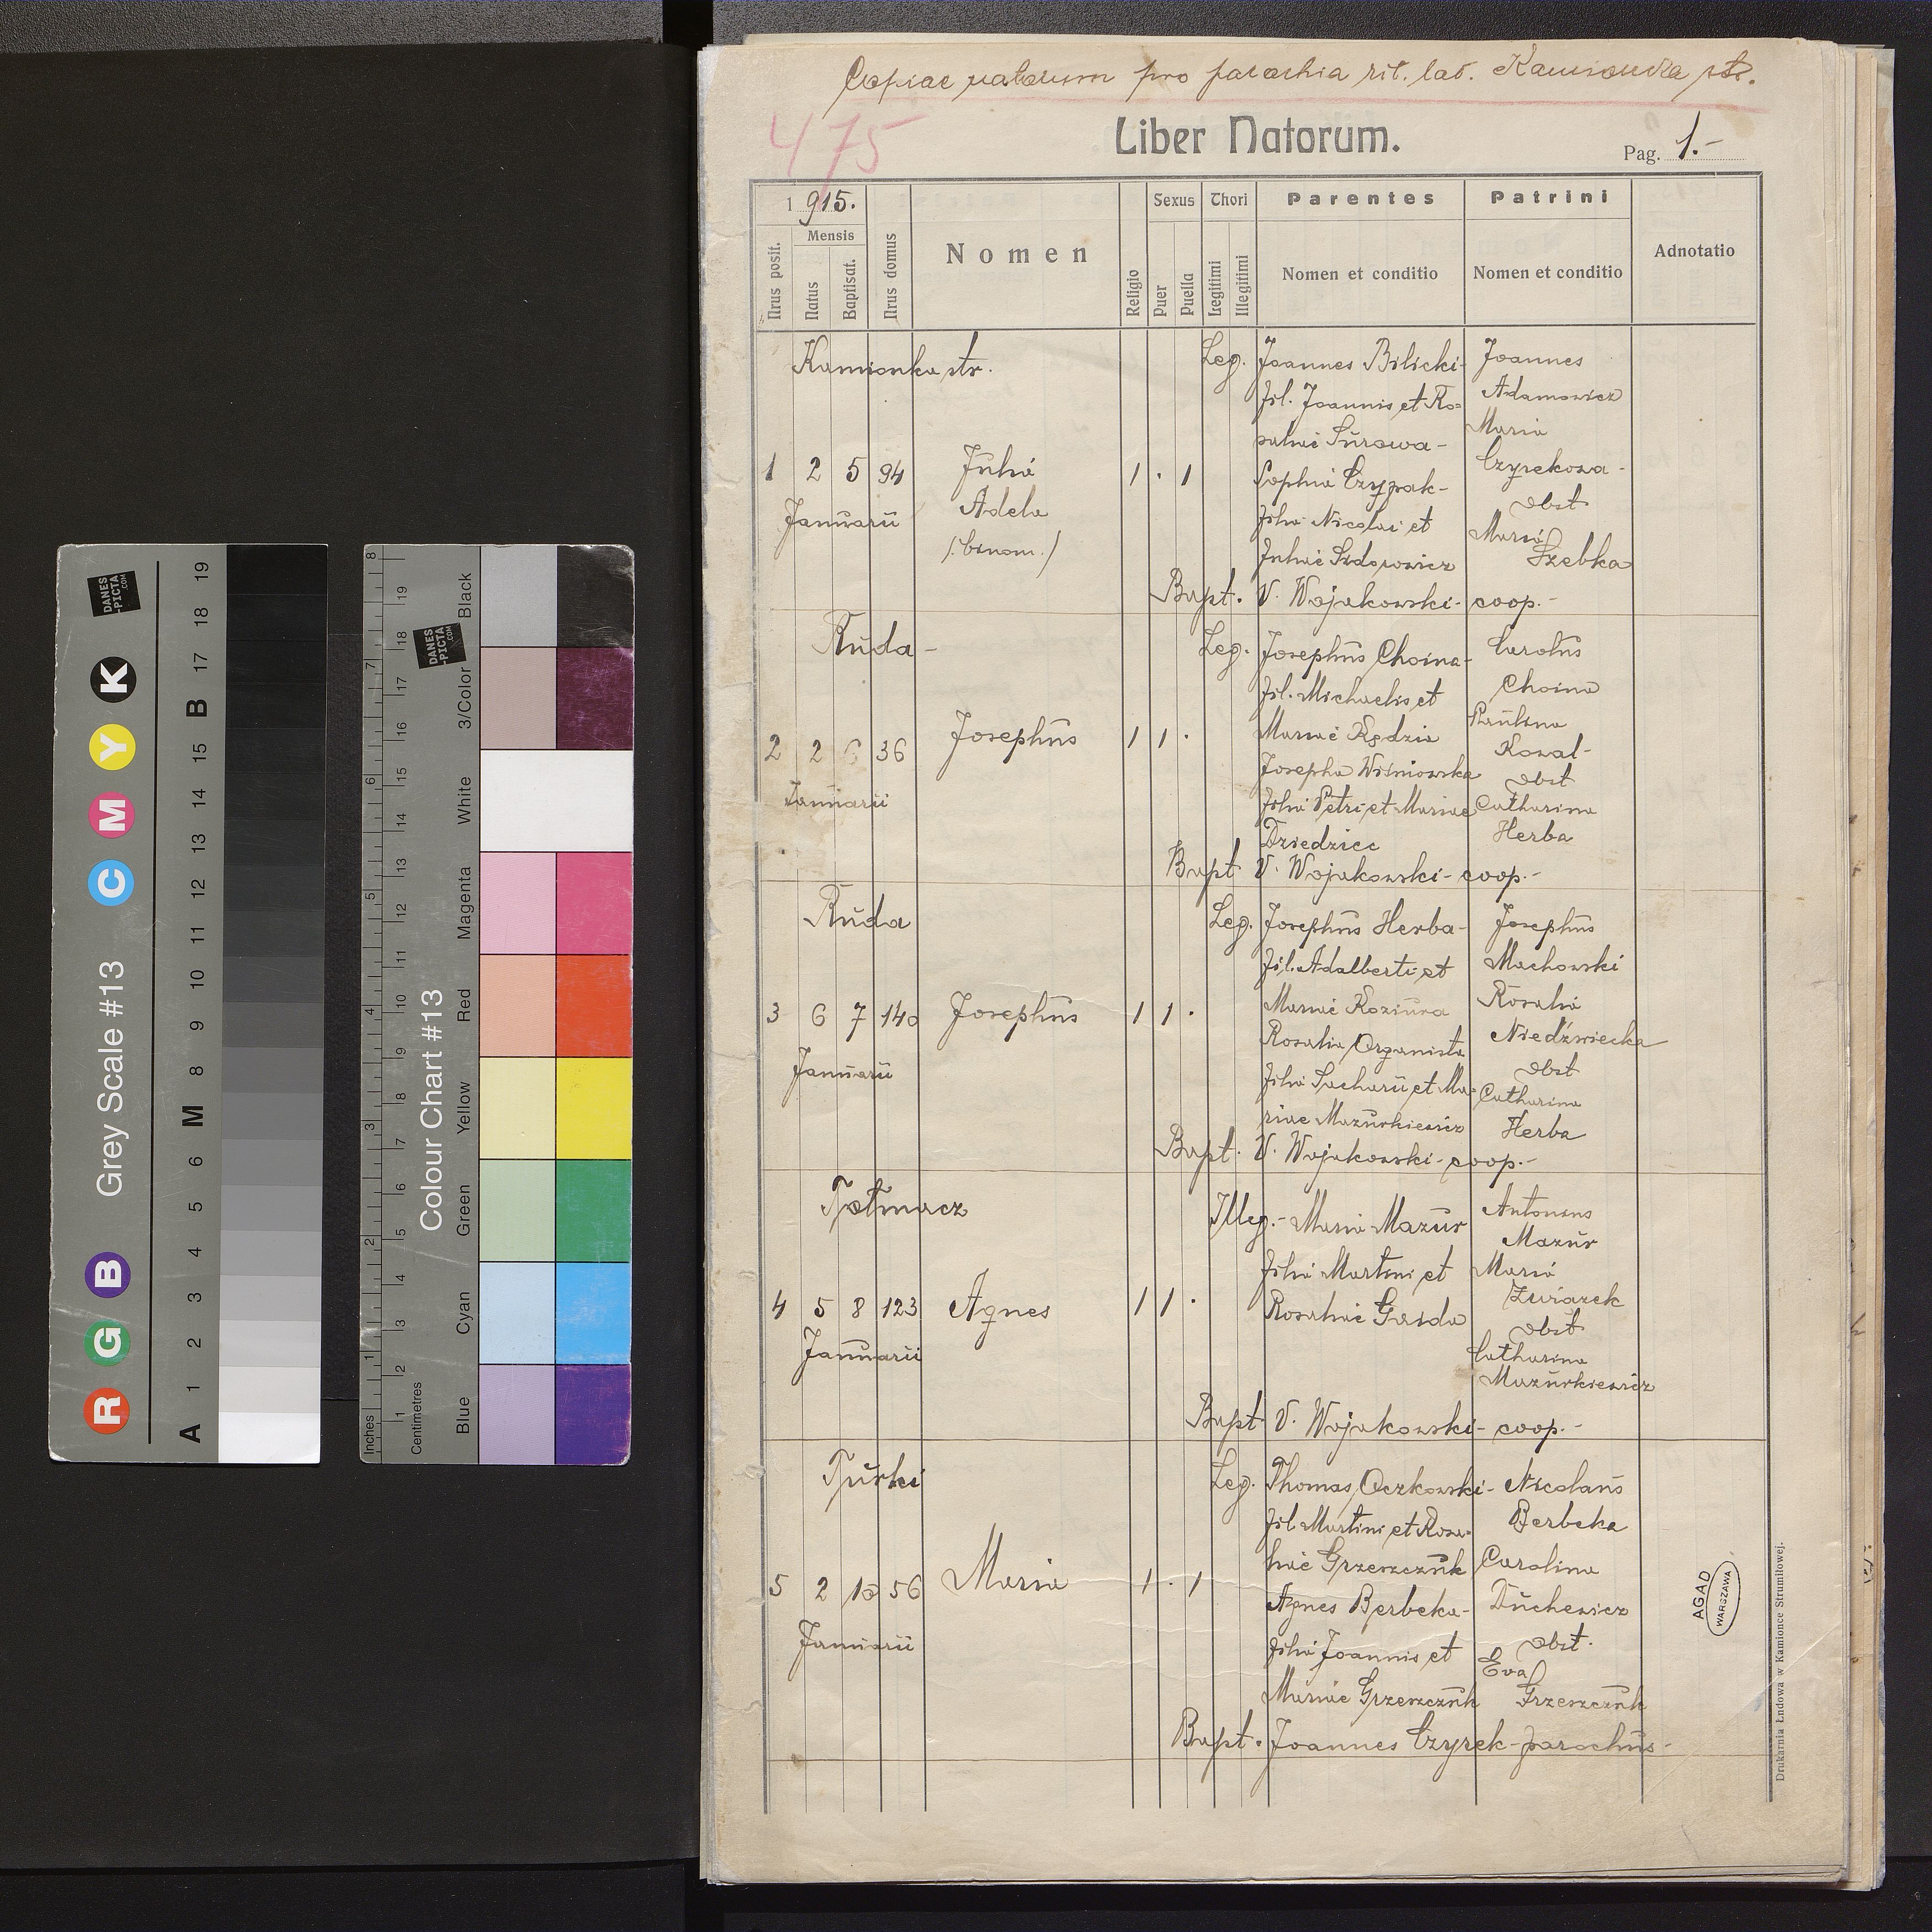 Copiae natorum pro parochia rit. lat. Kamionka str.
475
Liber Natorum.
Pag. 1.-
1 915.
Mensis
Nrus posit.
Natus
Baptisat.
Nrus domus
Nomen
Religio
Sexus
Puer
Puella
Thori
Legitimi
Illegitimi
Parentes
Nomen et conditio
Patrini
Nomen et conditio
Adnotatio
Kamionka str.
1 2 5 94
Januarii
Julia
Adela
/:binom./
1 . 1
Leg. Joannes Bilicki-
fil. Joannis et Ro=
saliae Surowa-
Sophia Czyzak-
filia Nicolai et
Juliae Sidorowicz
Joannes
Adamowicz
Maria
Czyrekowa-
obst
Maria
Szebka
Bapt. V. Wojakowski- coop.-
Ruda-
2 2 6 36
Januarii
Josephus
1 1 .
Leg. Josephus Choina-
fil. Michaelis et
Mariae Kędzia
Josepha Wiśniowska
filia Petri et Mariae
Dziedzicc
Carolus
Choina
Paulina
Kowal-
obst
Catharina
Herba
Bapt V. Wojakowski- coop.-
Ruda
3 6 7 140
Januarii
Josephus
1 1 .
Leg. Josephus Herba-
fil. Adalberti et
Mariae Koziura
Rosalia Organista
filia Sacharii et Ma=
riae Mazurkiewicz
Josephus
Machowski
Rosalia
Niedźwiecka
obst
Catharina
Herba
Bapt. V. Wojakowski- coop.-
Tłmacz
4 5 8 123
Januarii
Agnes
1 1 .
Illeg.- Maria Mazur
filia Martini et
Rosaliae Gajda
Antonius
Mazur
Maria
Związek
obst
Catharina
Mazurkiewicz
Bapt V. Wojakowski- coop.-
Turki
5 2 10 56
Januarii
Maria
1 . 1
Leg. Thomas Oczkowski-
fil. Martini et Rosa-
liae Grzeszczuk
Agnes Berbeka-
filia Joannis et
Mariae Grzeszczuk
Nicolaus
Berbeka
Carolina
Duchewicz
obst.
Eva
Grzeszczuk
Bapt. Joannes Czyrek- parochus-
AGAD
WARSZAWA
Drukarnia Łudowa w Kamionce Strumiłowej.
Grey Scale #13
R G B C M Y K
A 1 2 3 4 5 6 M 8 9 10 11 12 13 14 15 B 17 18 19
DANES
-PICTA
.COM
Colour Chart #13
Blue Cyan Green Yellow Red Magenta White 3/Color Black
Inches
Centimetres
1 2 3 4 5 6 7 8
1 2 3 4 5 6 7 8 9 10 11 12 13 14 15 16 17 18 19
DANES
-PICTA
.COM